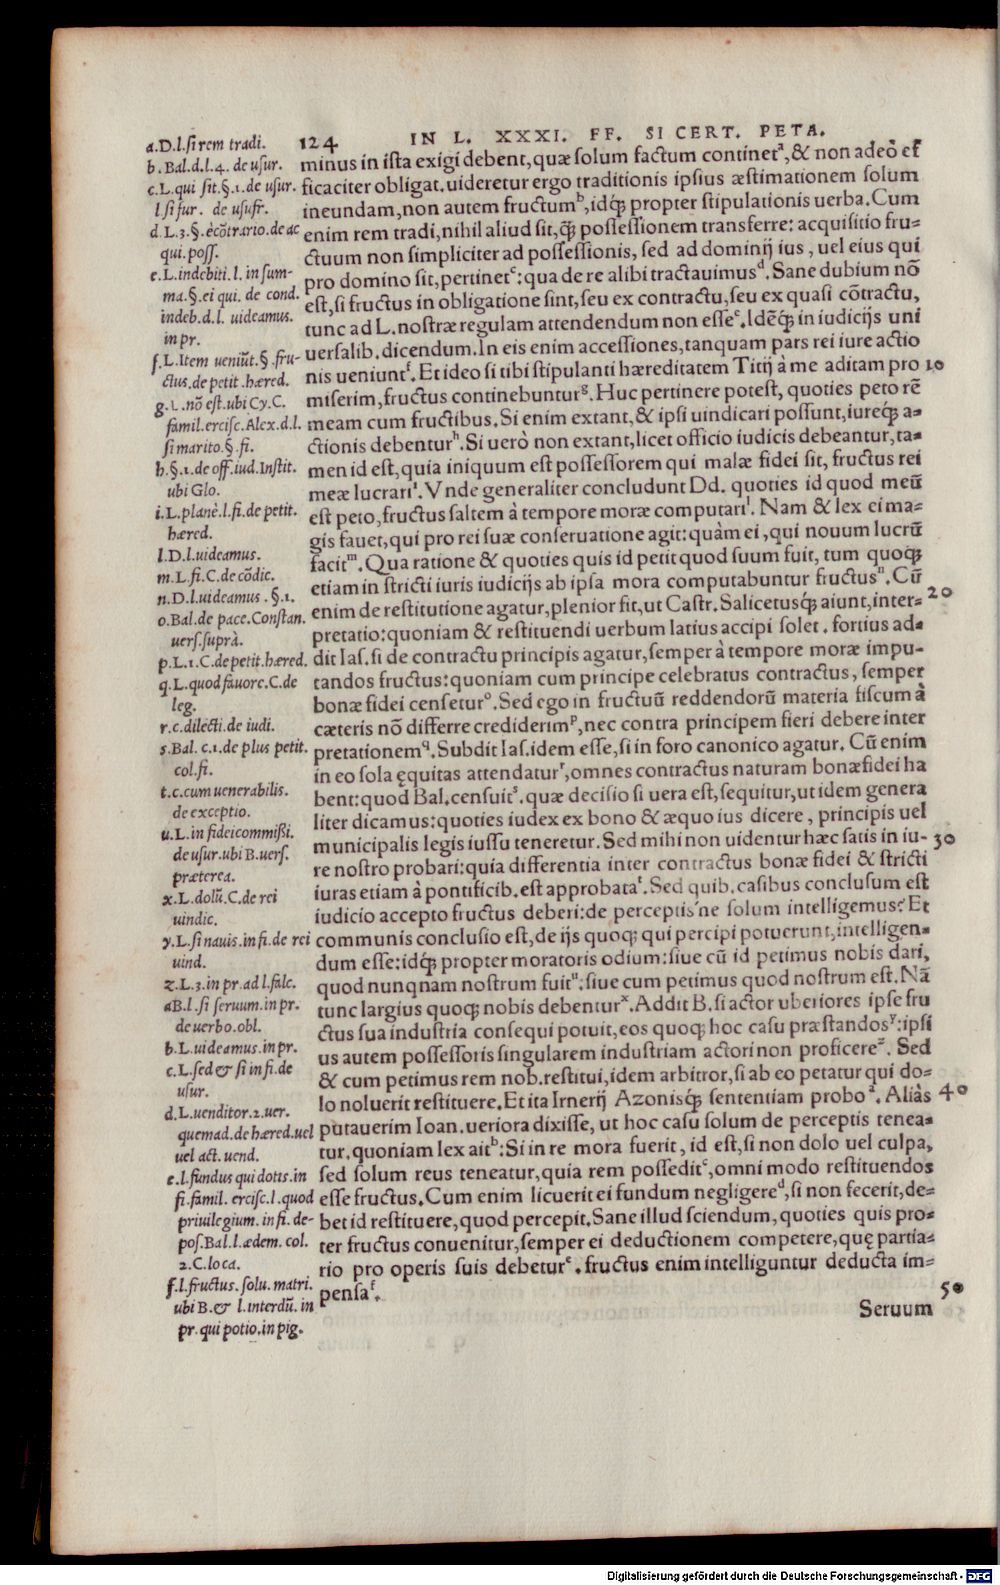 124 IN L. XXXI. FF. SI CERT. PETA.
minus in ista exigi debent, quæ solum factum continetᵃ, & non adeò ef
ficaciter obligat. uideretur ergo traditionis ipsius æstimationem solum
ineundam, non autem fructumᵇ, idq́; propter stipulationis uerba. Cum
enim rem tradi, nihil aliud sit, q̃; possessionem transferre: acquisitio fru=
ctuum non simpliciter ad possessionis, sed ad dominij ius, uel eius qui
pro domino sit, pertinetᶜ: qua de re alibi tractauimusᵈ. Sane dubium nõ
est, si fructus in obligatione sint, seu ex contractu, seu ex quasi cõtractu,
tunc ad L. nostræ regulam attendendum non esseᵉ. Idẽq́; in iudicijs uni
uersalib. dicendum. In eis enim accessiones, tanquam pars rei iure actio
nis ueniuntᶠ. Et ideo si tibi stipulanti hæreditatem Titij à me aditam pro 10
miserim, fructus continebunturᵍ. Huc pertinere potest, quoties peto rẽ
meam cum fructibus. Si enim extant, & ipsi uindicari possunt, iureq́; a=
ctionis debenturʰ. Si uerò non extant, licet officio iudicis debeantur, ta=
men id est, quia iniquum est possessorem qui malæ fidei sit, fructus rei
meæ lucrariⁱ. Vnde generaliter concludunt Dd. quoties id quod meũ
est peto, fructus saltem à tempore moræ computariˡ. Nam & lex ei ma=
gis fauet, qui pro rei suæ conseruatione agit: quàm ei, qui nouum lucrũ
facitᵐ. Qua ratione & quoties quis id petit quod suum fuit, tum quoq;
etiam in stricti iuris iudicijs ab ipsa mora computabuntur fructusⁿ. Cũ
enim de restitutione agatur, plenior fit, ut Castr. Salicetusq́; aiunt, inter= 20
pretatio: quoniam & restituendi uerbum latius accipi solet. fortius ad=
dit Ias. si de contractu principis agatur, semper à tempore moræ impu=
tandos fructus: quoniam cum principe celebratus contractus, semper
bonæ fidei censeturᵒ. Sed ego in fructuũ reddendorũ materia fiscum à
cæteris nõ differre crediderimᵖ, nec contra principem fieri debere inter
pretationem^q. Subdit Ias. idem esse, si in foro canonico agatur. Cũ enim
in eo sola ęquitas attendaturʳ, omnes contractus naturam bonæ fidei ha
bent: quod Bal. censuitˢ. quæ decisio si uera est, sequitur, ut idem genera
liter dicamus: quoties iudex ex bono & æquo ius dicere, principis uel
municipalis legis iussu teneretur. Sed mihi non uidentur hæc satis in iu= 30
re nostro probari: quia differentia inter contractus bonæ fidei & stricti
iuras etiam à pontificib. est approbataᵗ. Sed quib. casibus conclusum est
iudicio accepto fructus deberi: de perceptis'ne solum intelligemus? Et
communis conclusio est, de ijs quoq; qui percipi potuerunt, intelligen=
dum esse: idq́; propter moratoris odium: siue cũ id petimus nobis dari,
quod nunqnam nostrum fuitᵘ: siue cum petimus quod nostrum est. Nã
tunc largius quoq; nobis debenturˣ. Addit B. si actor uberiores ipse fru
ctus sua industria consequi potuit, eos quoq; hoc casu præstandosʸ: ipsi
us autem possessoris singularem industriam actori non proficereᶻ. Sed
& cum petimus rem nob. restitui, idem arbitror, si ab eo petatur qui do=
lo noluerit restituere. Et ita Irnerij Azonisq́; sententiam proboᵃ. Aliàs 40
putauerim Ioan. ueriora dixisse, ut hoc casu solum de perceptis tenea=
tur. quoniam lex aitᵇ: Si in re mora fuerit, id est, si non dolo uel culpa,
sed solum reus teneatur, quia rem posseditᶜ, omni modo restituendos
esse fructus. Cum enim licuerit ei fundum negligereᵈ, si non fecerit, de=
bet id restituere, quod percepit. Sane illud sciendum, quoties quis pro=
ter fructus conuenitur, semper ei deductionem competere, quę partia=
rio pro operis suis debeturᵉ. fructus enim intelliguntur deducta im=
pensaᶠ. 50
Seruum
a. D. l. si rem tradi.
b. Bal. d. l. 4. de usur.
c. L. qui sit. §. 1. de usur.
l. si fur. de usufr.
d. L. 3. §. ècõtrario. de ac
qui. poss.
e. L. indebiti. l. in sum-
ma. §. ei qui. de cond.
indeb. d. l. uideamus.
in pr.
f. L. Item ueniũt. §. fru-
ctus. de petit. hæred.
g. L. nõ est. ubi Cy. C.
famil. ercisc. Alex. d. l.
si marito. §. fi.
h. §. 1. de off. iud. Instit.
ubi Glo.
i. L. planè. l. fi. de petit.
hæred.
l. D. l. uideamus.
m. L. fi. C. de cõdic.
n. D. l. uideamus. §. 1.
o. Bal. de pace. Constan.
uers. suprà.
p. L. 1. C. de petit. hæred.
q. L. quod fauore. C. de
leg.
r. c. dilecti. de iudi.
s. Bal. c. 1. de plus petit.
col. fi.
t. c. cum uenerabilis.
de exceptio.
u. L. in fideicommissi.
de usur. ubi B. uers.
præterea.
x. L. dolũ. C. de rei
uindic.
y. L. si nauis. in fi. de rei
uind.
z. L. 3. in pr. ad l. falc.
a B. l. si seruum. in pr.
de uerbo. obl.
b. L. uideamus. in pr.
c. L. sed & si in fi. de
usur.
d. L. uenditor. 2. uer.
quemad. de hæred. uel
uel act. uend.
e. l. fundus qui dotis. in
fi. famil. ercisc. l. quod
priuilegium. in fi. de-
pos. Bal. l. ædem. col.
2. C. loca.
f. l. fructus. solu. matri.
ubi B. & l. interdũ. in
pr. qui potio. in pig.
Digitalisierung gefördert durch die Deutsche Forschungsgemeinschaft - DFG